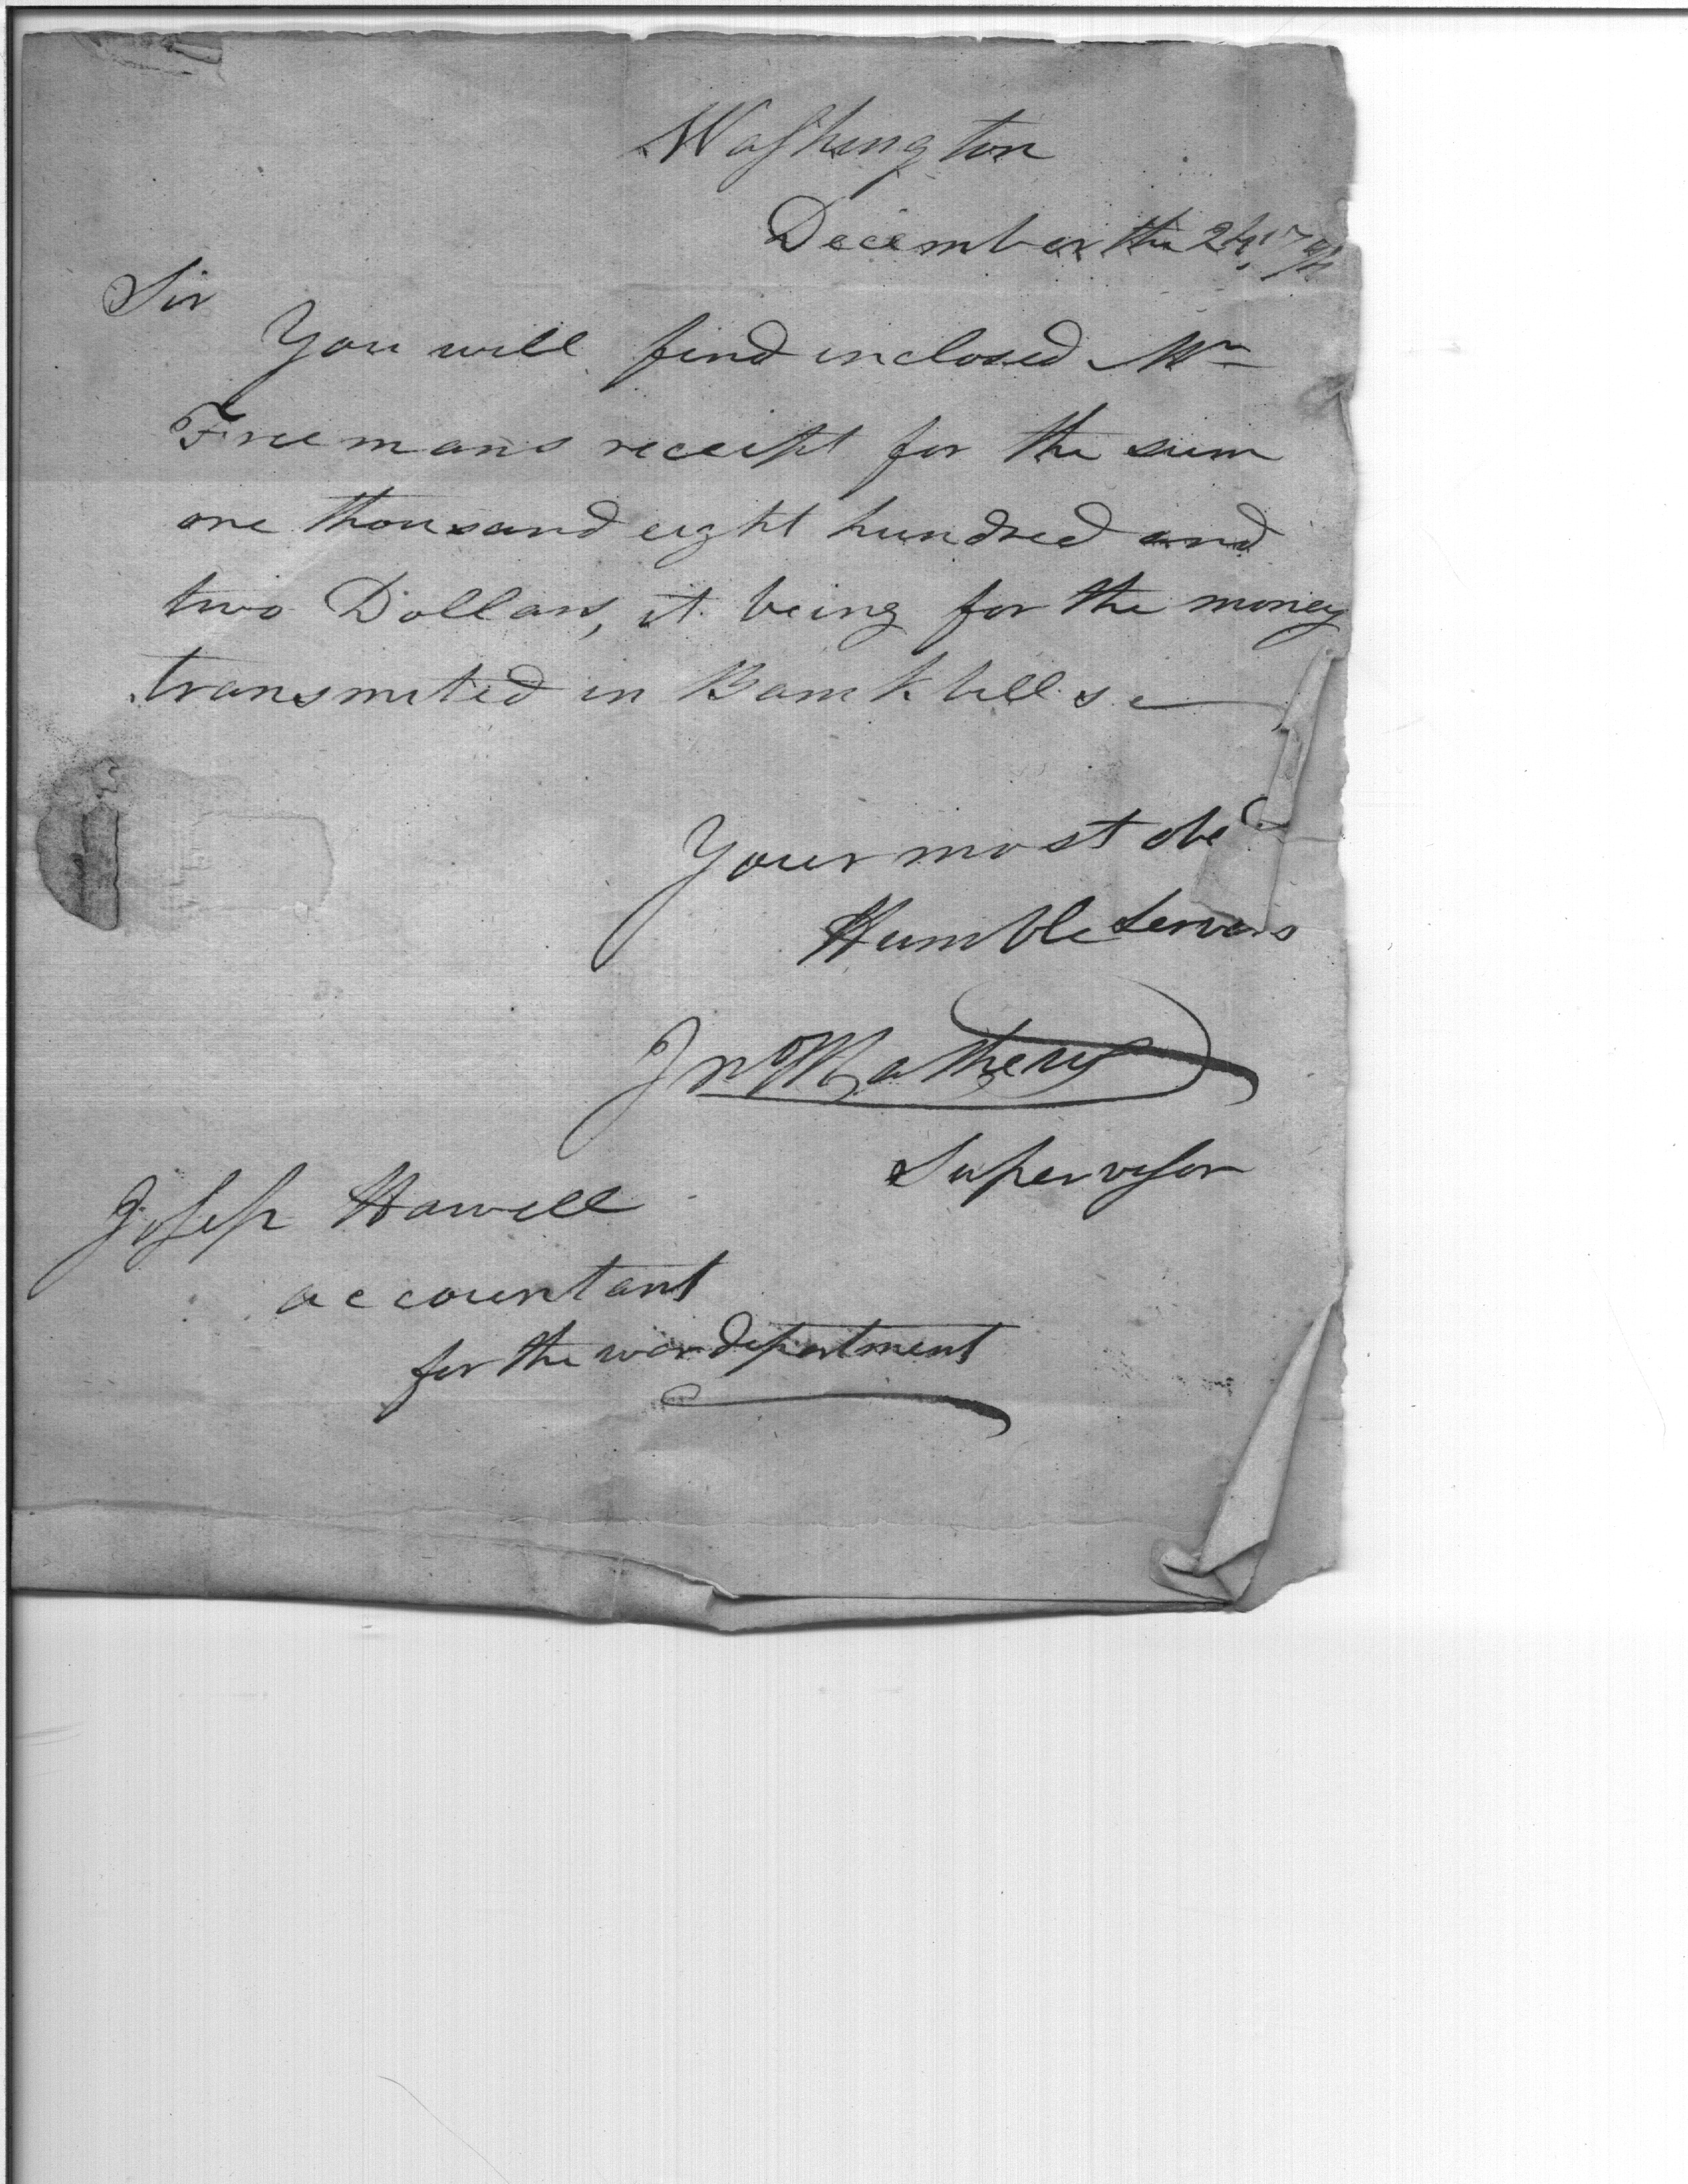 Washington
December the 24, 1794
Sir
You will find inclosed Mr
Freemans receipt for the sum
one thousand eight hundred and
two Dollars, it being for the money
transmited in Bank bills
Your most obe
Humble Servt
Jno Mathews
Supervisor
Joseph Howell
accountant
for the war department